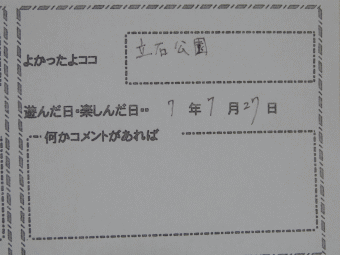 よかったよココ 立石公園
遊んだ日・楽しんだ日・・ 7 年 7 月 27 日
何かコメントがあれば